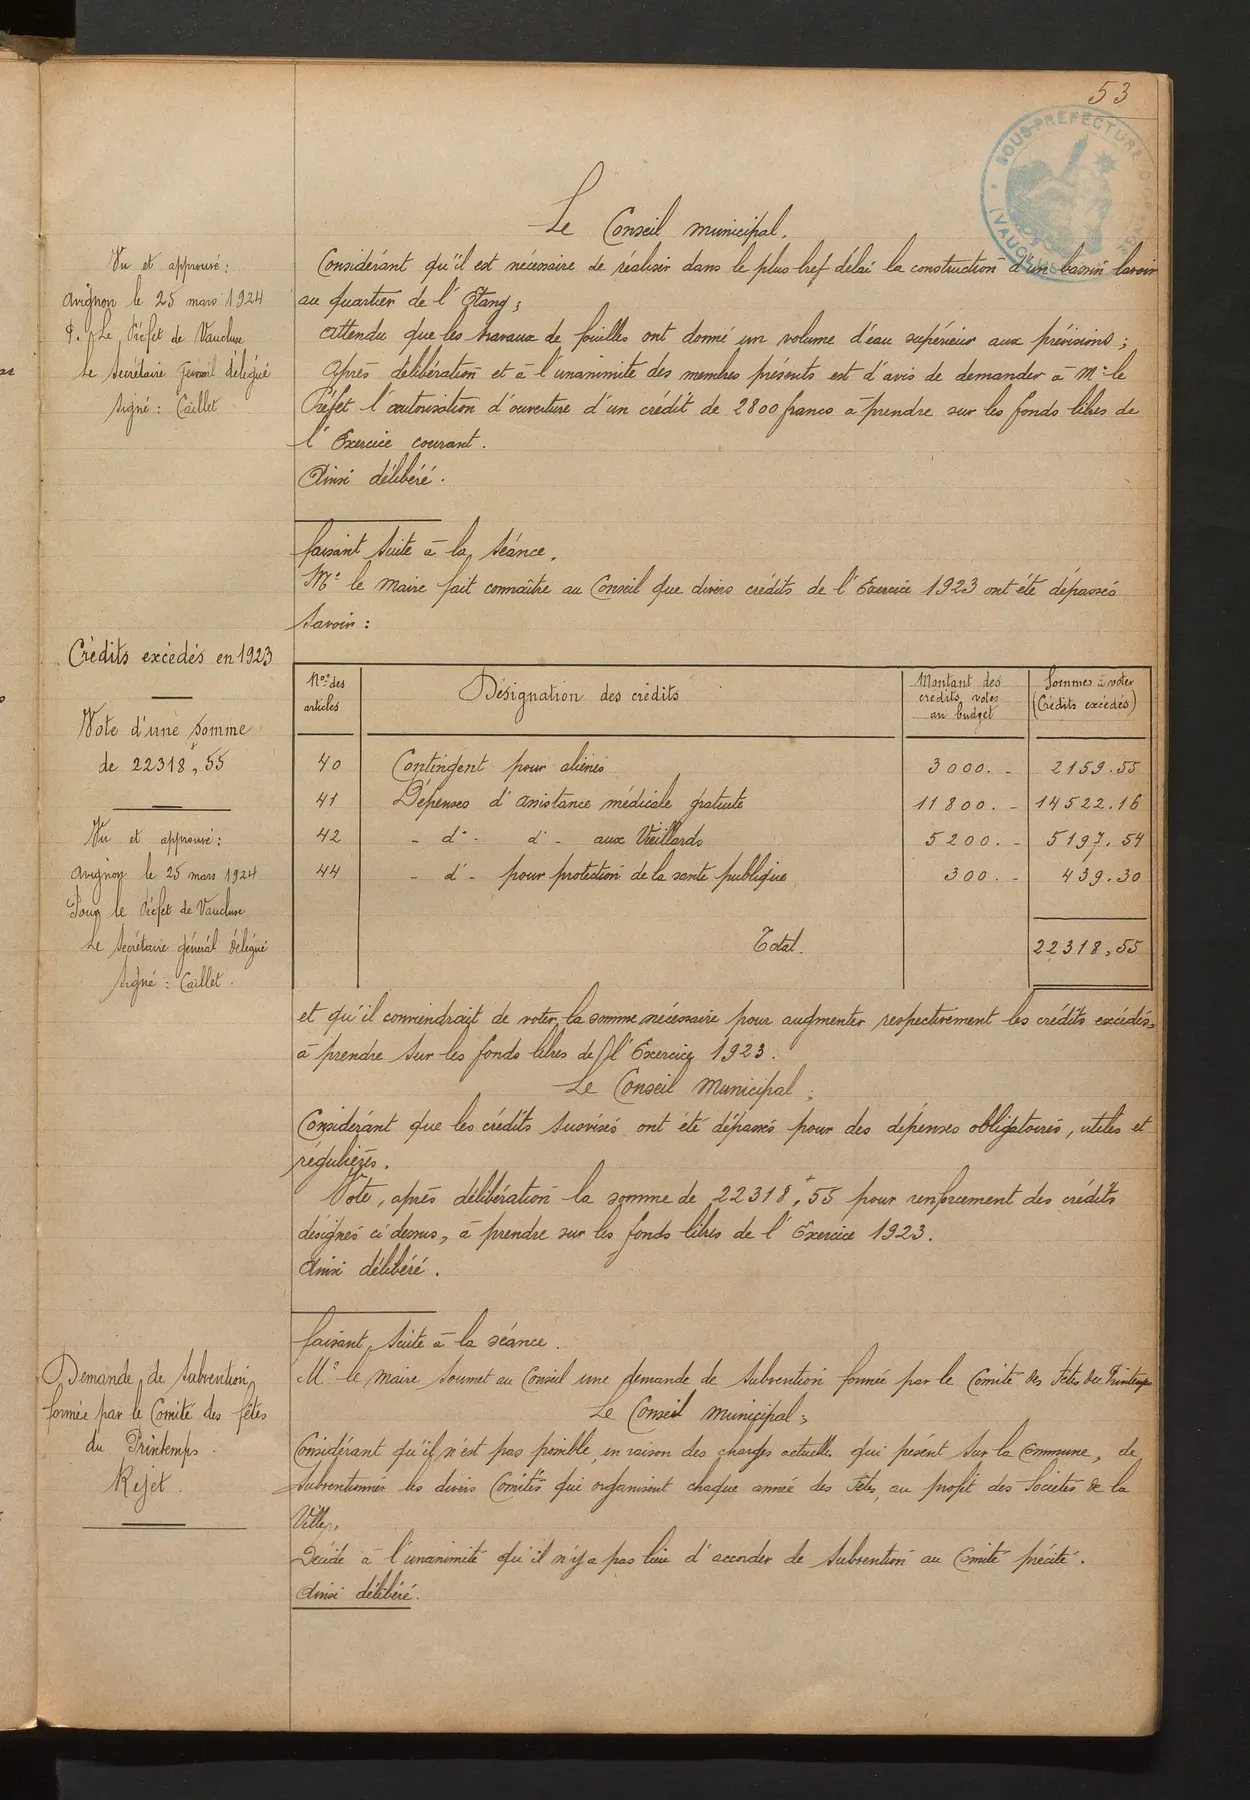 53
SOUS-PRÉFECTURE
(VAUCLUSE)
Le Conseil municipal.
Vu et approuvé :
Avignon le 25 mars 1924
P. Le Préfet de Vaucluse
Le Secrétaire Général délégué
Signé : Caillet
Considérant qu'il est nécessaire de réaliser dans le plus bref délai la construction d'un bassin lavoir
au quartier de l'Etang ;
Attendu que les travaux de fouilles ont donné un volume d'eau supérieur aux prévisions ;
Après délibération et à l'unanimité des membres présents est d'avis de demander à Mr le
Préfet l'autorisation d'ouverture d'un crédit de 2800 francs à prendre sur les fonds libres de
l'Exercice courant.
Ainsi délibéré.
faisant suite à la séance.
Mr le Maire fait connaître au Conseil que divers crédits de l'Exercice 1923 ont été dépassés
Savoir :
Crédits excédés en 1923
Vote d'une somme
de 22318,55
Vu et approuvé :
Avignon le 25 mars 1924
Pour le Préfet de Vaucluse
Le Secrétaire général délégué
Signé : Caillet.
Nos des articles | Désignation des crédits | Montant des crédits votés au budget | Sommes à voter (Crédits excédés)
40 | Contingent pour aliénés | 3000. - | 2159.55
41 | Dépenses d'assistance médicale gratuite | 11800. - | 14522.16
42 | - d° - d° - aux Vieillards | 5200. - | 5197.54
44 | - d° - pour protection de la santé publique | 300. - | 439.30
Total. | 22318,55
et qu'il conviendrait de voter la somme nécessaire pour augmenter respectivement les crédits excédés,
à prendre sur les fonds libres de l'Exercice 1923.
Le Conseil Municipal ;
Considérant que les crédits susvisés ont été dépassés pour des dépenses obligatoires, utiles et
régulières.
Vote, après délibération la somme de 22318,55 pour renforcement des crédits
désignés ci dessus, à prendre sur les fonds libres de l'Exercice 1923.
Ainsi délibéré.
faisant suite à la séance.
Demande de Subvention
formée par le Comité des fêtes
du Printemps.
Rejet.
Mr le Maire Soumet au Conseil une demande de Subvention formée par le Comité des Fêtes du Printemps
Le Conseil Municipal ;
Considérant qu'il n'est pas possible, en raison des charges actuelles qui pèsent sur la Commune, de
Subventionner les divers Comités qui organisent chaque année des Fêtes, au profit des Sociétés de la
Ville,
Décide à l'unanimité qu'il n'y a pas lieu d'accorder de Subvention au Comité précité.
Ainsi délibéré.